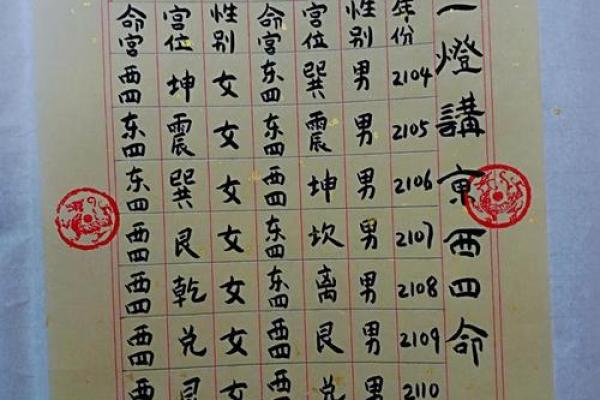 一燈講東西四命
年份 性别 宫位 命宫 性别 宫位 命宫
2104 男 巽 东四 女 坤 西四
2105 男 震 东四 女 震 东四
2106 男 坤 西四 女 巽 东四
2107 男 坎 东四 女 艮 西四
2108 男 离 东四 女 乾 西四
2109 男 艮 西四 女 兑 西四
2110 男 兑 西四 女 艮 西四